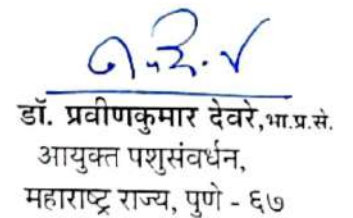 डॉ. प्रवीणकुमार देवरे,भा.प्र.से.
आयुक्त पशुसंवर्धन,
महाराष्ट्र राज्य, पुणे - ६७